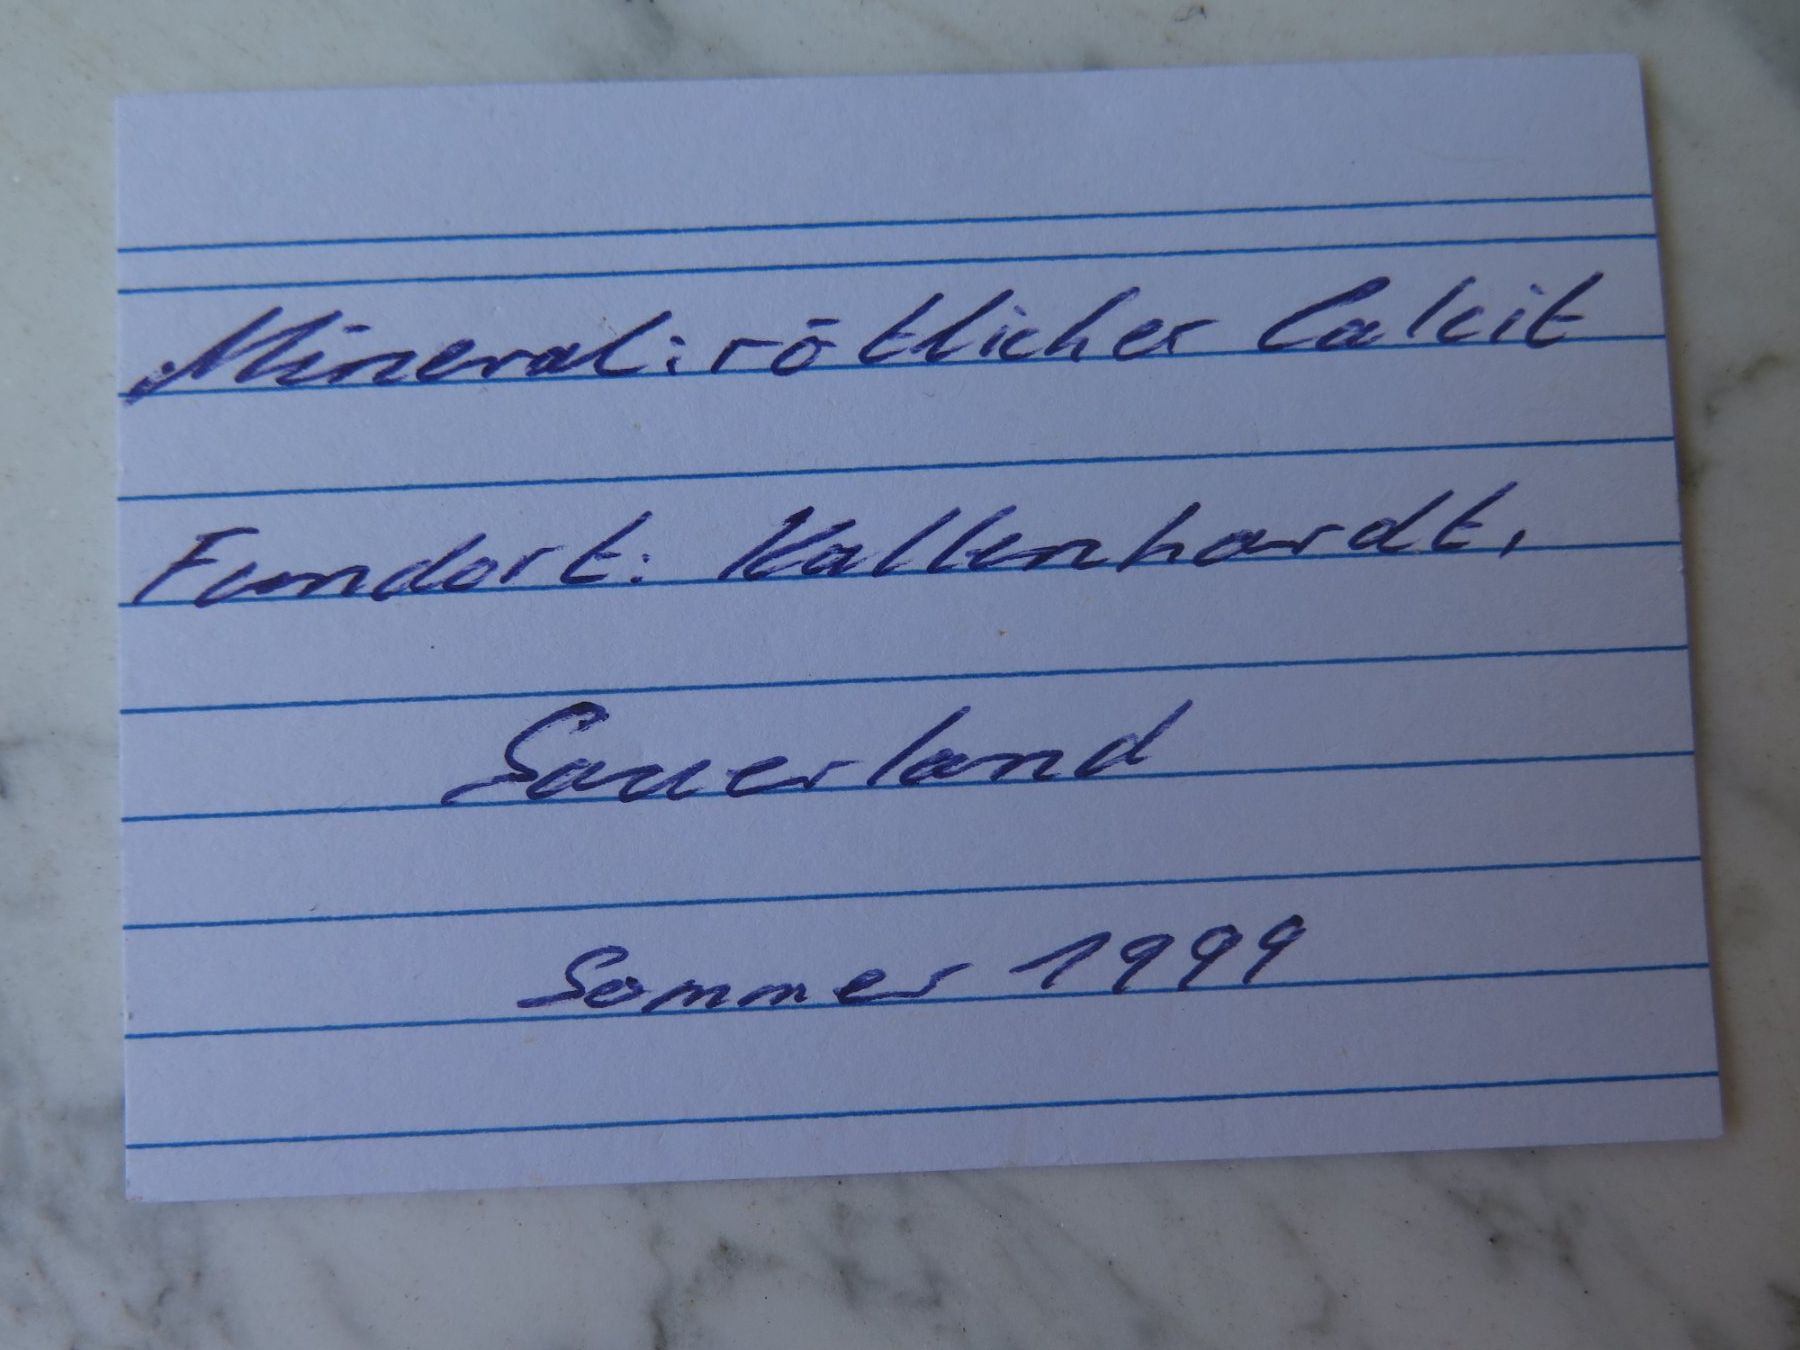 Mineral: rötlicher Calcit
Fundort: Kallenhardt,
Sauerland
Sommer 1999